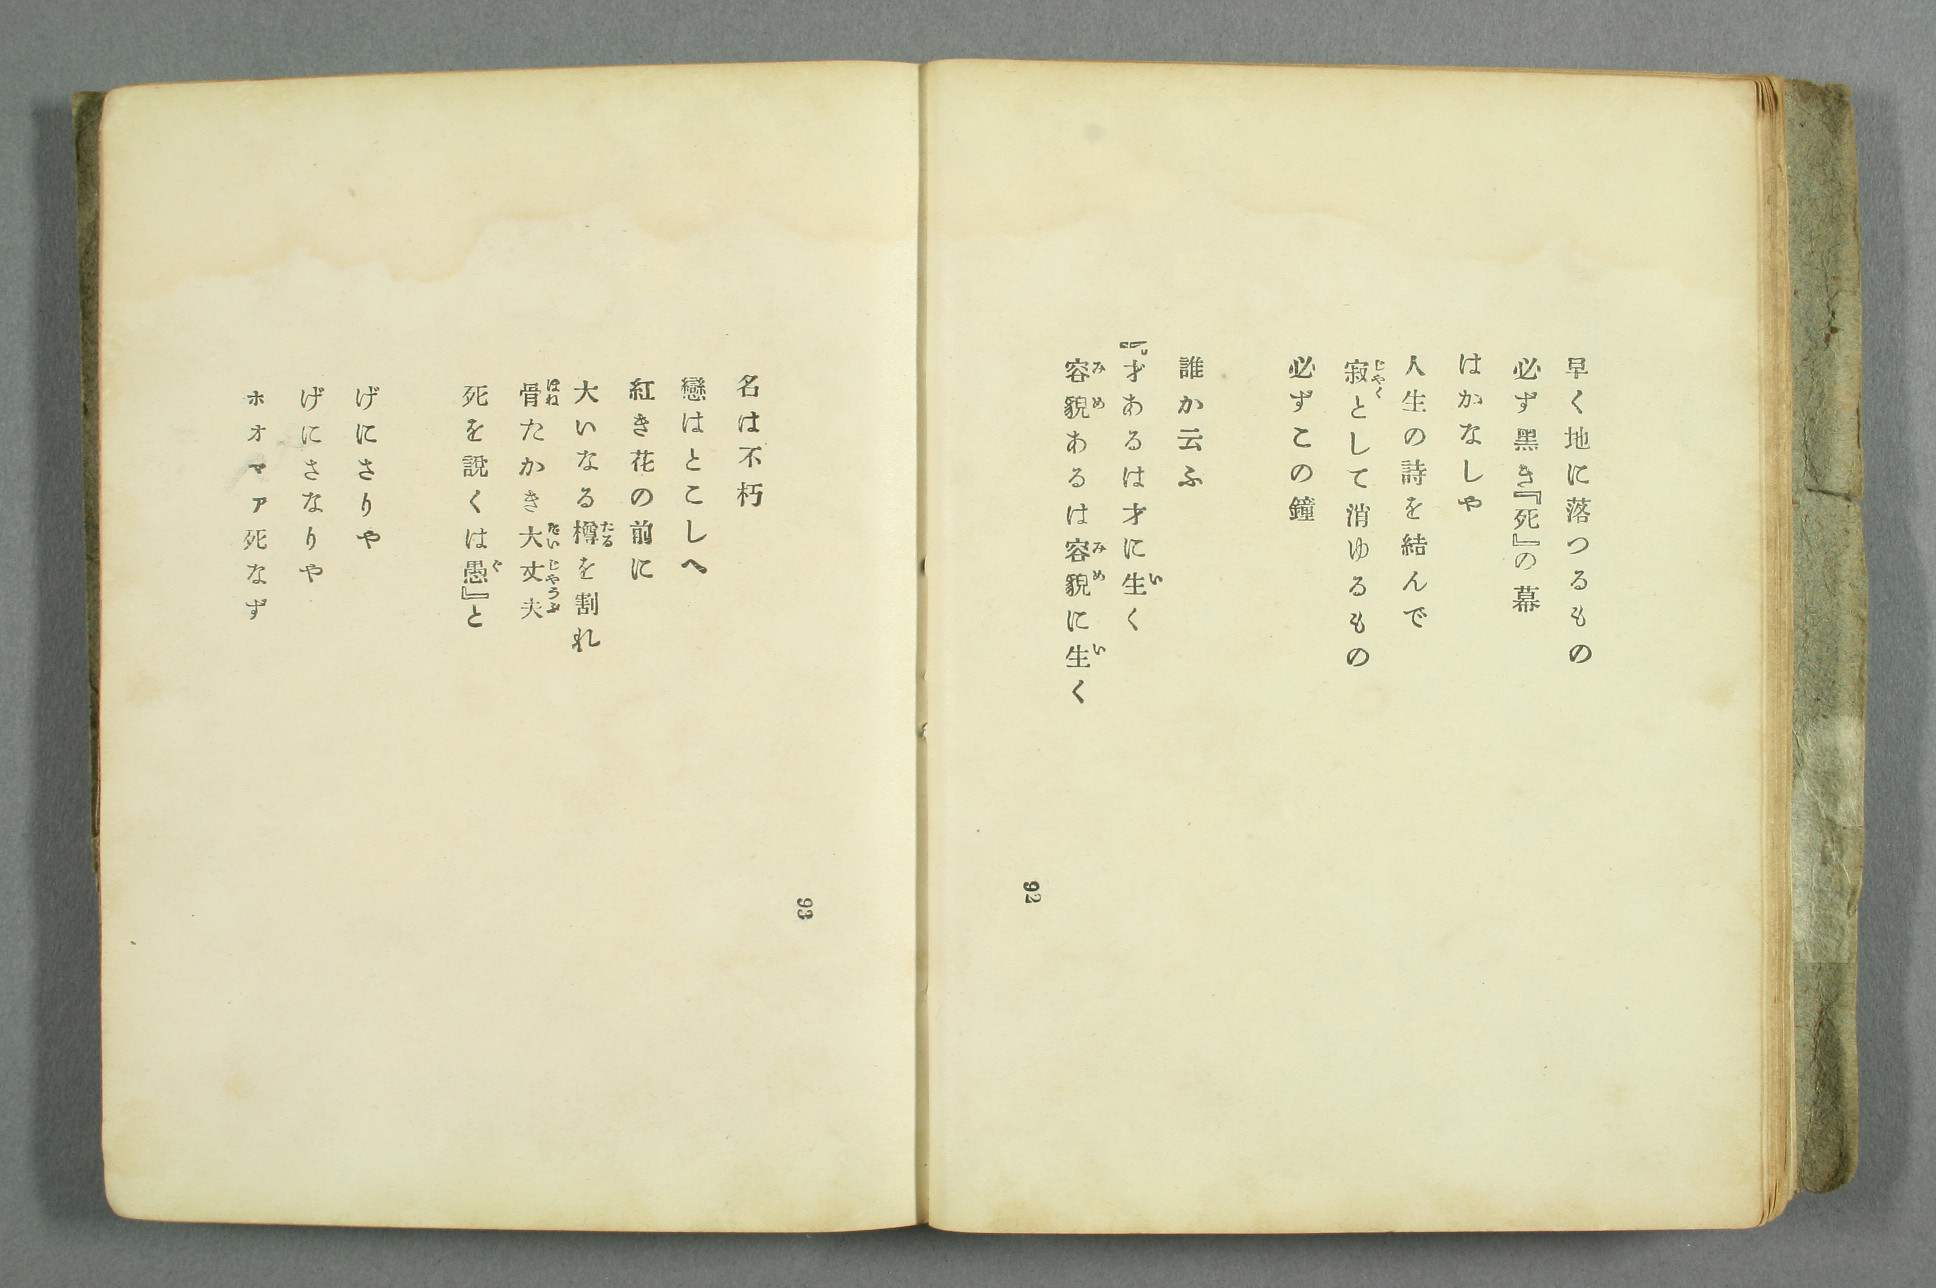 早く地に落つるもの
必ず黑き『死』の幕
はかなしや
人生の詩を結んで
寂として消ゆるもの
必ずこの鐘
誰か云ふ
『才あるは才に生く
容貌あるは容貌に生く
92
名は不朽
戀はとこしへ
紅き花の前に
大いなる樽を割れ
骨たかき大丈夫
死を説くは愚』と
げにさりや
げにさなりや
ホオマア死なず
93